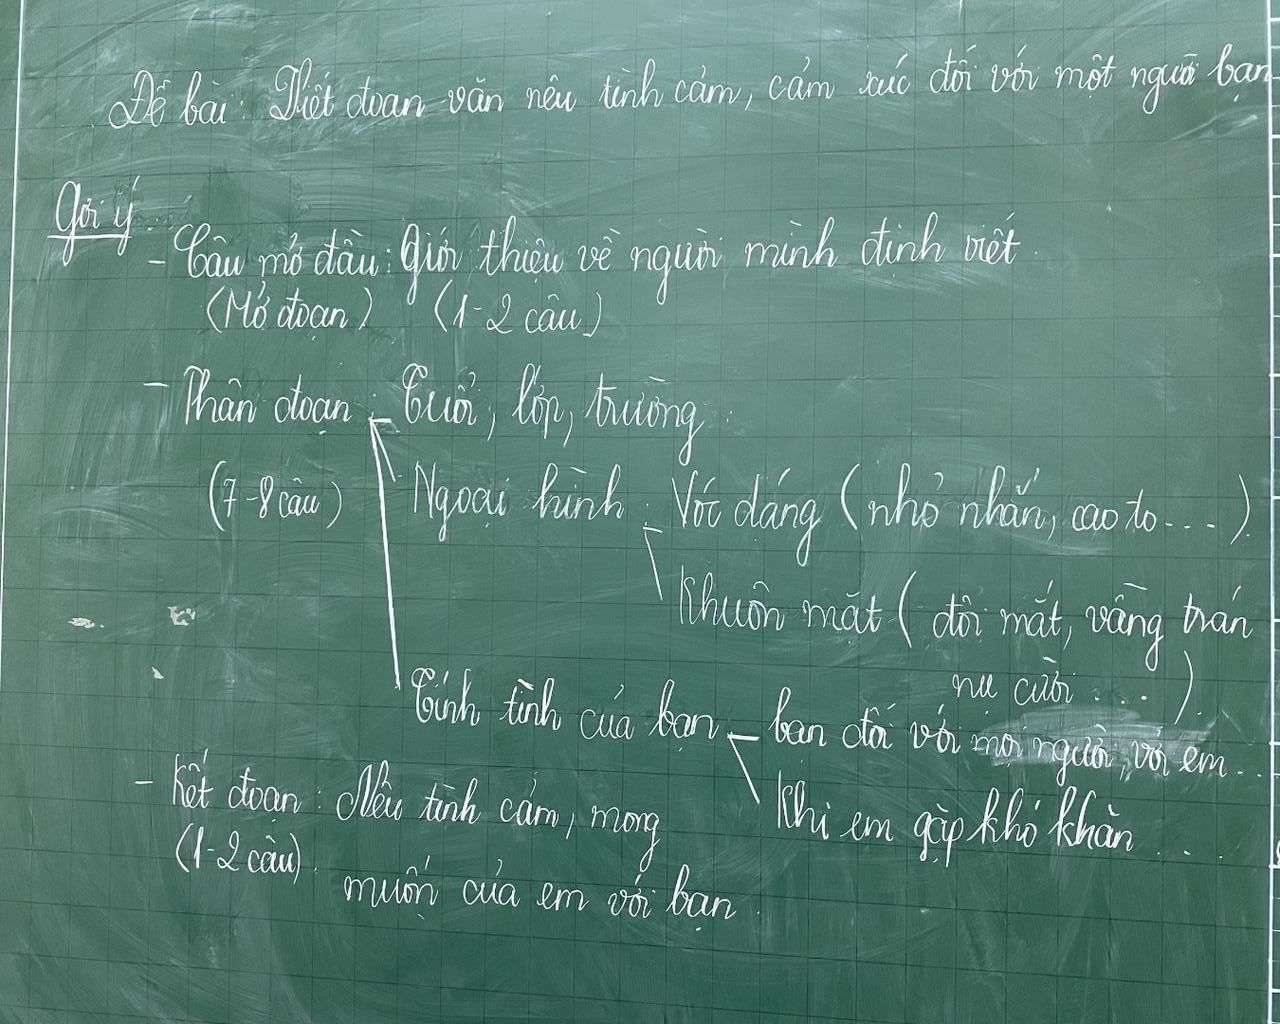 Đề bài: Viết đoạn văn nêu tình cảm, cảm xúc đối với một người bạn
Gợi ý
- Câu mở đầu: Giới thiệu về người mình định viết
(Mở đoạn) (1-2 câu)
- Thân đoạn: - Tuổi, lớp, trường
(7-8 câu) Ngoại hình: Vóc dáng (nhỏ nhắn, cao to...)
Khuôn mặt (đôi mắt, vầng trán
nụ cười....).
Tính tình của bạn - bạn đối với mọi người, với em...
- Kết đoạn: Nêu tình cảm, mong Khi em gặp khó khăn...
(1-2 câu). muốn của em với bạn.